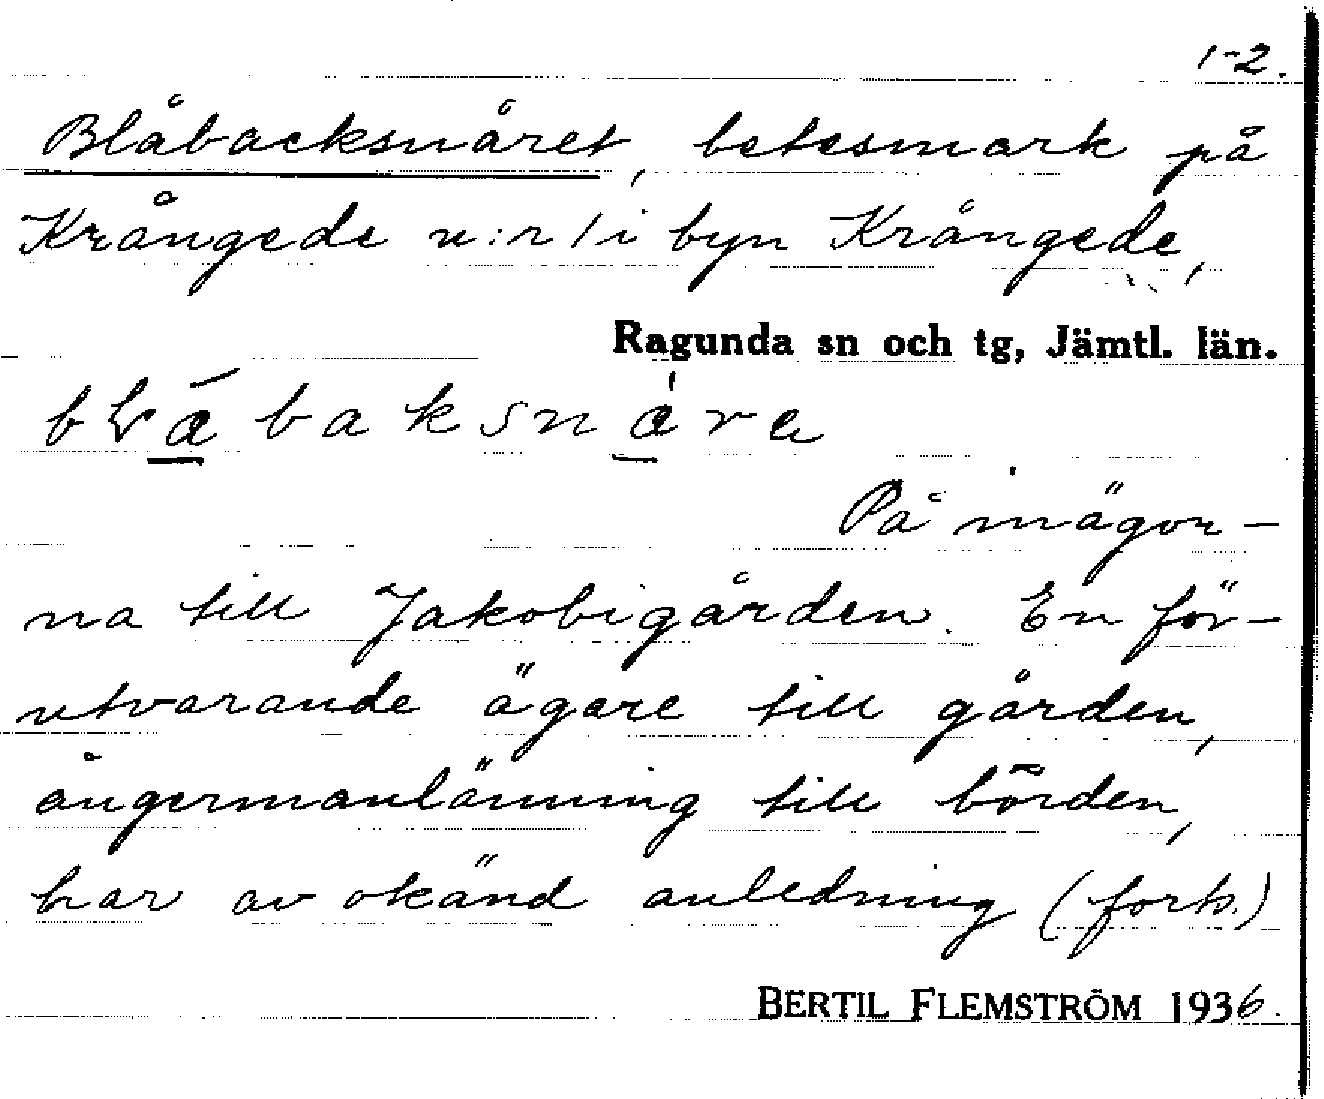 1-2.
Blåbacksnåret, betesmark på
Krångede n:r 1 i byn Krångede,
Ragunda sn och tg, Jämtl. län.
På mägor-
na till Jakobigården. En för-
utvarande ägare till gården,
ångermanlänning till börden,
har av okänd anledning (forts.)
BERTIL FLEMSTRÖM 1936.